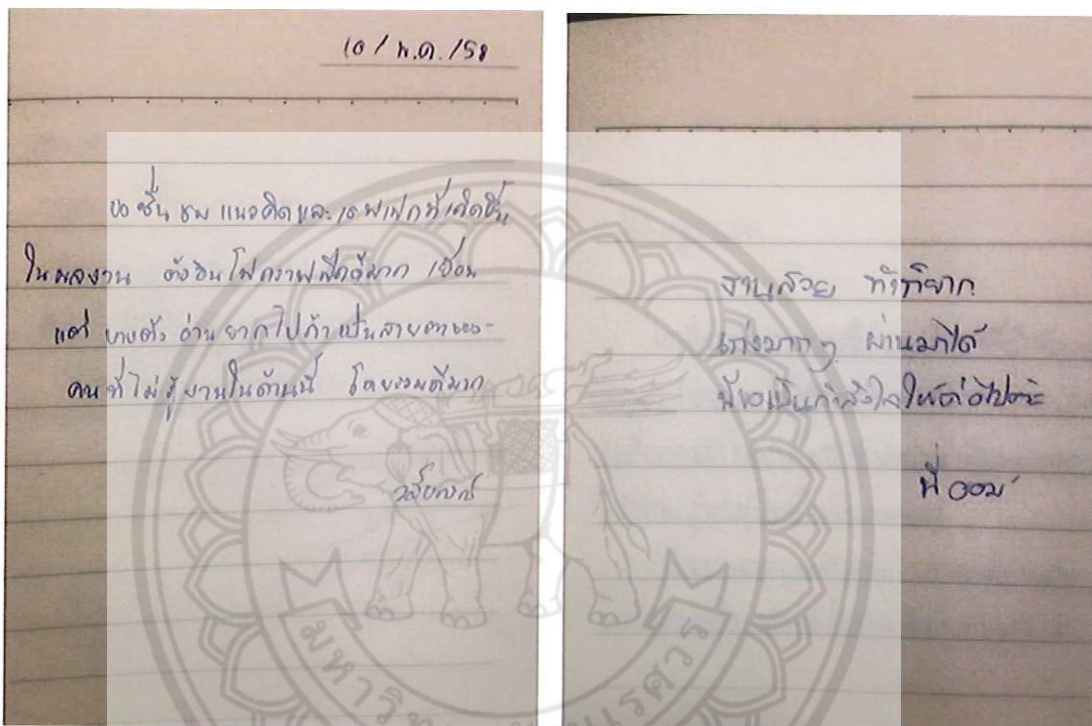 10 / พ.ค. / 58
ขอชื่นชมแนวคิดและเอฟเฟกที่เกิดขึ้น
ในผลงาน ตัวอินโฟกราฟฟิคดีมาก เยี่ยม
แต่ บางตัว อ่านยากไปถ้าเป็นสายตาของ-
คนที่ไม่รู้งานในด้านนี้ โดยรวมดีมาก
งานสวย ทำก็ยาก
เก่งมากๆ ผ่านมาได้
พี่ขอเป็นกำลังใจให้ต่อไปค่ะ
พี่ออม
มหาวิทยาลัยนเรศวร